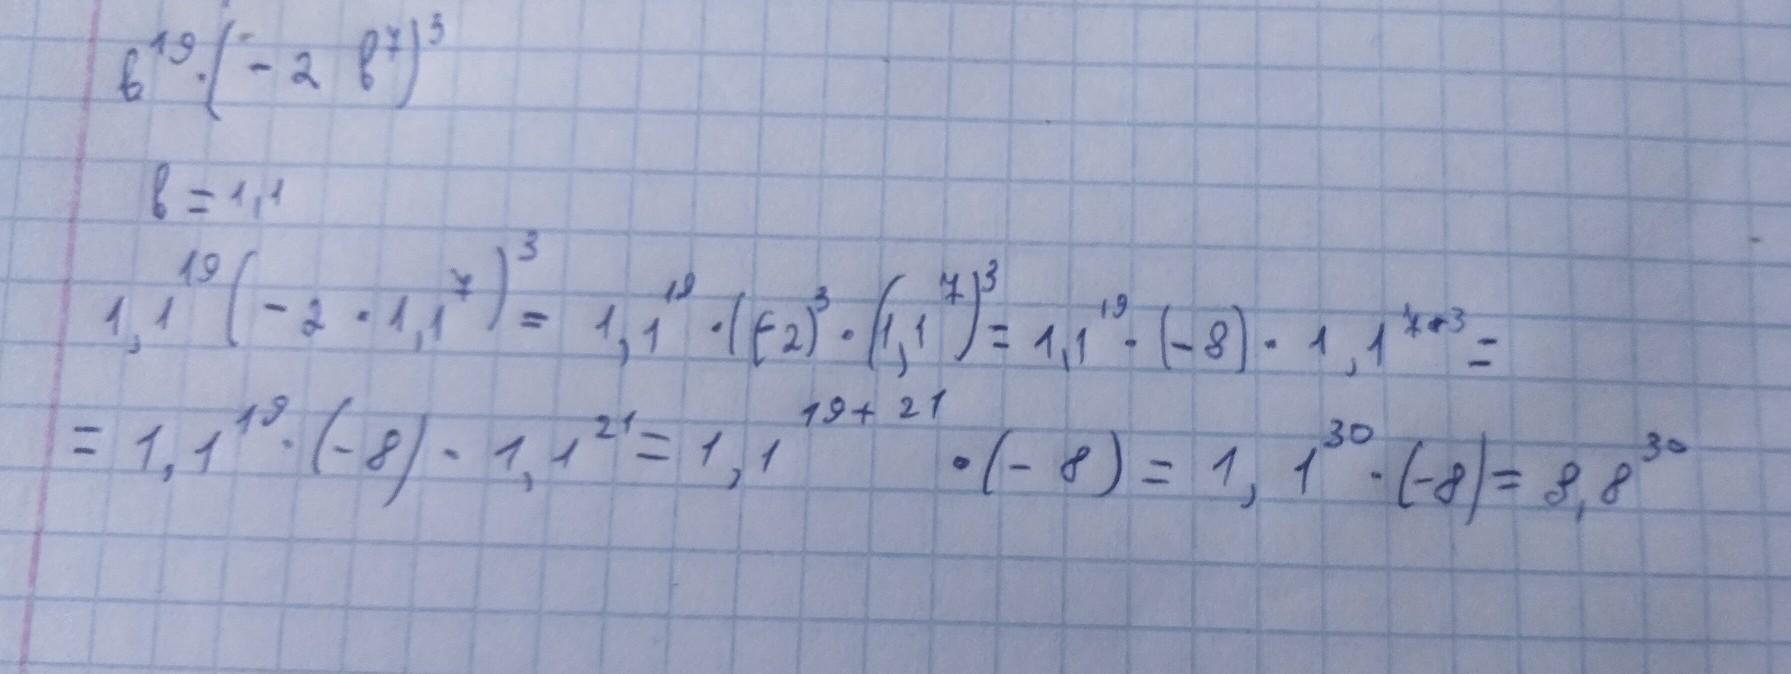 b¹⁹·(-2 b⁷)³
b = 1,1
1,1¹⁹(-2·1,1⁷)³ = 1,1¹⁹·(-2)³·(1,1⁷)³ = 1,1¹⁹·(-8)·1,1⁷*³ =
= 1,1¹⁹·(-8)·1,1²¹ = 1,1¹⁹⁺²¹·(-8) = 1,1³⁰·(-8) = 8,8³⁰